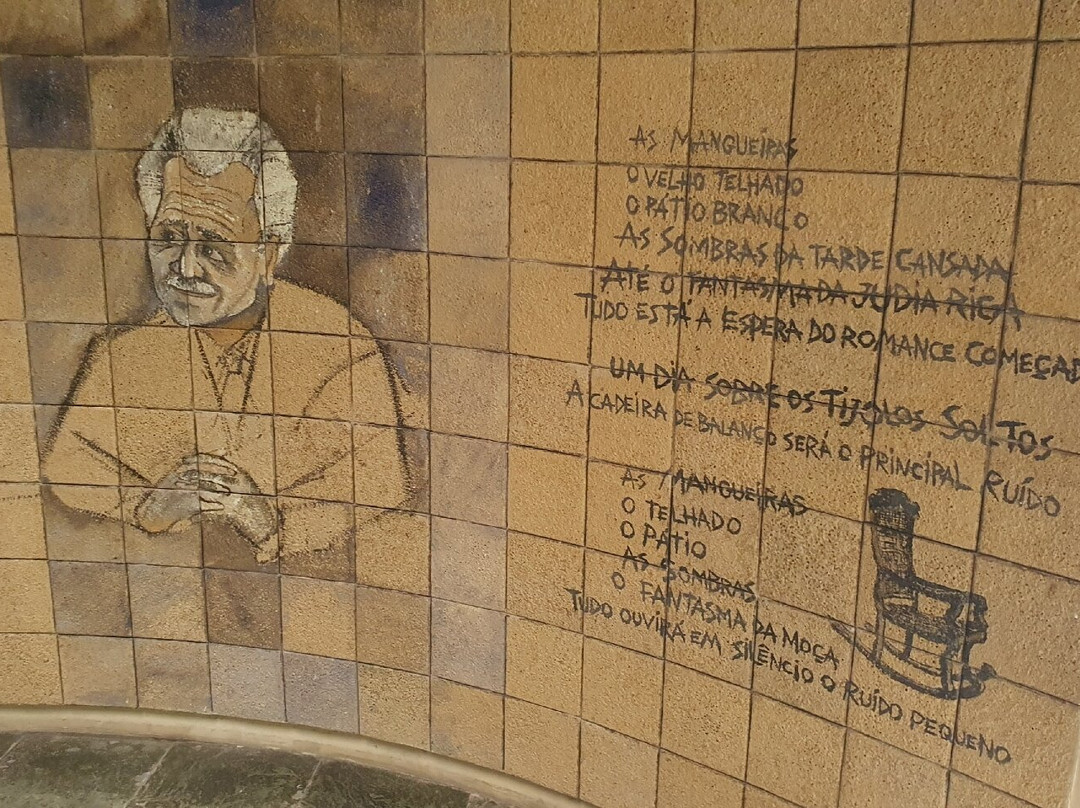 AS MANGUEIRAS
O VELHO TELHADO
O PÁTIO BRANCO
AS SOMBRAS DA TARDE CANSADA
ATÉ O FANTASMA DA JUDIA RIGA
TUDO ESTÁ A ESPERA DO ROMANCE COMEÇAD
UM DIA SOBRE OS TIJOLOS SOLTOS
A CADEIRA DE BALANÇO SERÁ O PRINCIPAL RUÍDO
AS MANGUEIRAS
O TELHADO
O PÁTIO
AS SOMBRAS
O FANTASMA DA MOÇA
TUDO OUVIRÁ EM SILÊNCIO O RUÍDO PEQUENO